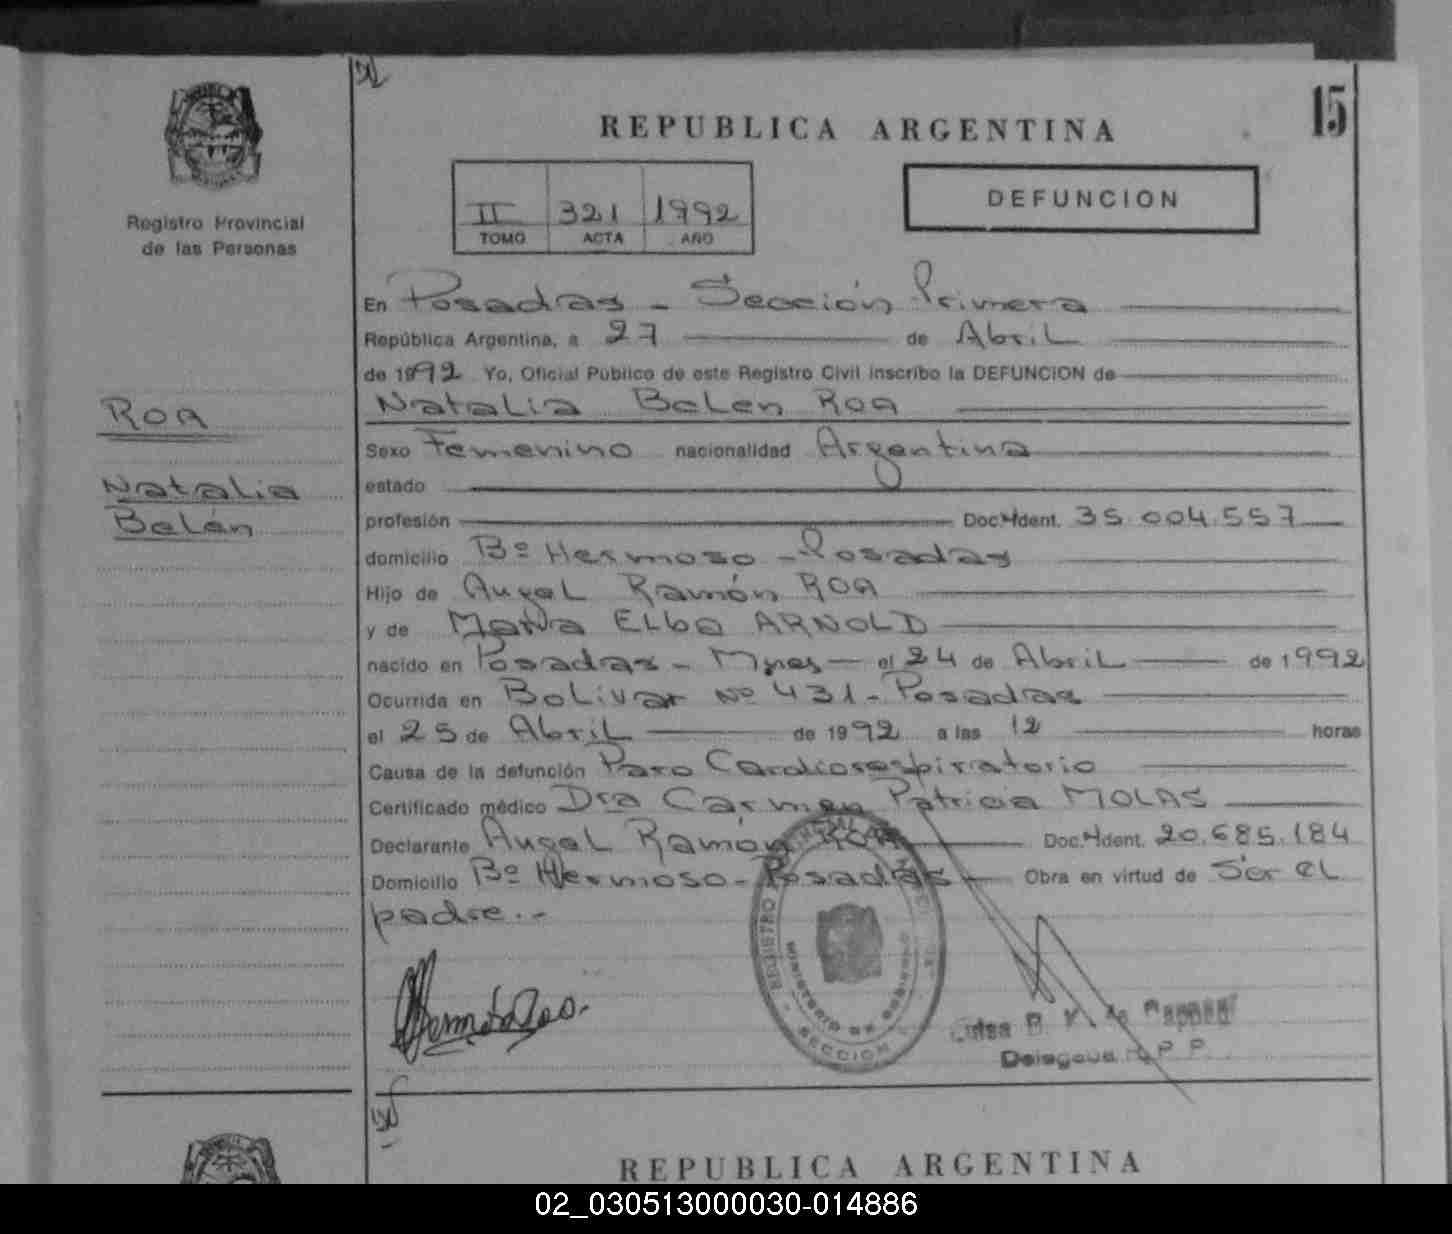 15
REPUBLICA ARGENTINA
Registro Provincial
de las Personas
II 321 1992
TOMO ACTA AÑO
DEFUNCION
ROA
Natalia
Belén
En Posadas - Sección Primera
República Argentina, a 27 de Abril
de 1992 Yo, Oficial Público de este Registro Civil inscribo la DEFUNCION de
Natalia Belen Roa
Sexo Femenino nacionalidad Argentina
estado
profesión Doc. Ident. 35.004.557
domicilio Bº Hermoso - Posadas
Hijo de Angel Ramón ROA
y de Maria Elba ARNOLD
nacido en Posadas - Mnes - el 24 de Abril de 1992
Ocurrida en Bolivar Nº 431 - Posadas
el 25 de Abril de 1992 a las 12 horas
Causa de la defunción Paro Cardiorespiratorio
Certificado médico Dra Carmen Patricia MOLAS
Declarante Angel Ramón ROA Doc. Ident. 20.685.184
Domicilio Bº Hermoso - Posadas - Obra en virtud de Ser el
padre.-
REGISTRO
MINISTERIO DE GOBIERNO
SECCION
Luisa B. V. de
Delegada R. P. P.
REPUBLICA ARGENTINA
02_030513000030-014886